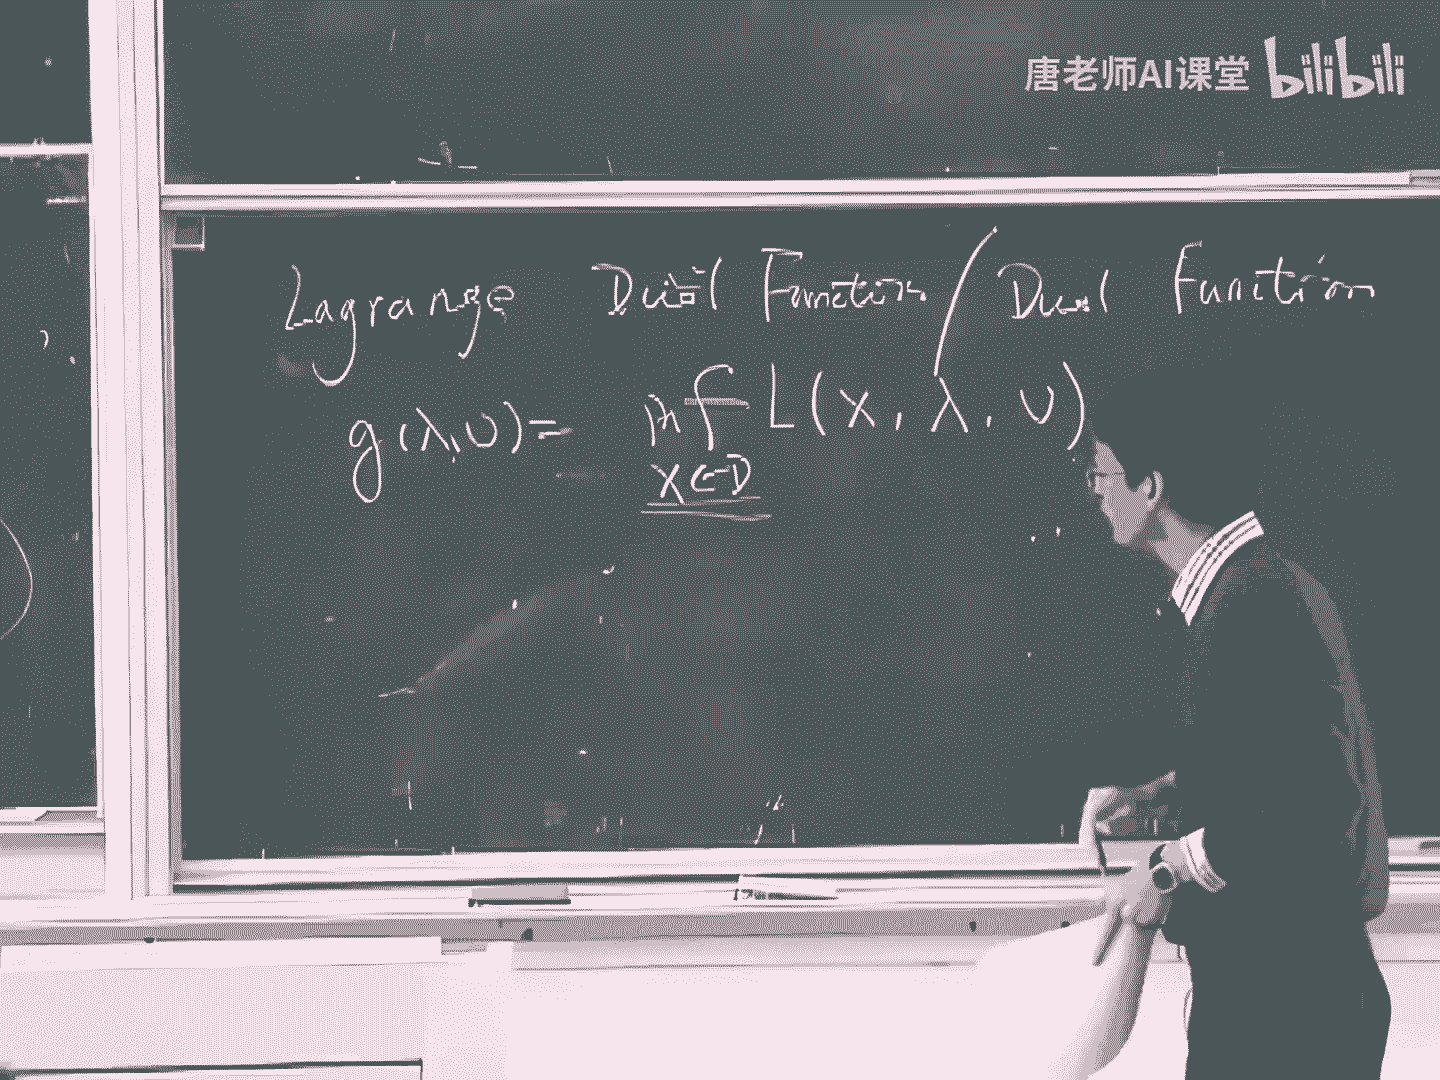 唐老师AI课堂 bilibili
Lagrange Dual Function / Dual Function
g(λ,υ)= inf L(x, λ, υ)
x∈D